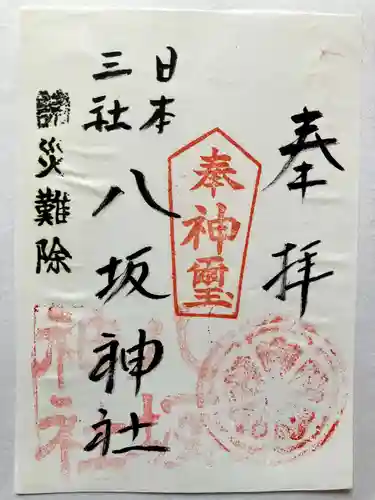 奉拝
奉神璽
日本
三社
八坂神社
諸災難除
神社